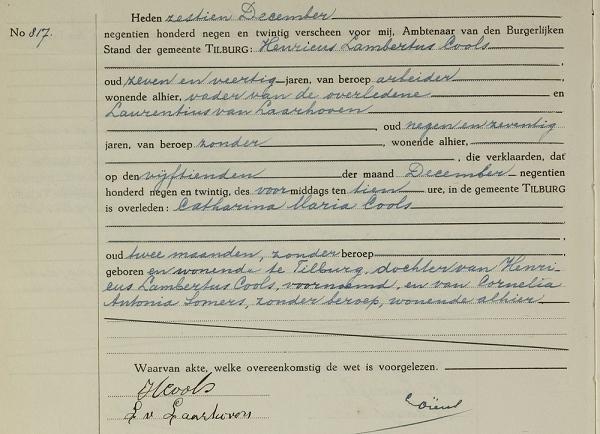 Heden zestien December
No 817.
negentien honderd negen en twintig verscheen voor mij, Ambtenaar van den Burgerlijken
Stand der gemeente TILBURG: Henricus Lambertus Cools
oud zeven en veertig jaren, van beroep arbeider,
wonende alhier, vader van de overledene en
Laurentius van Laarhoven
, oud negen en zeventig
jaren, van beroep zonder, wonende alhier,
, die verklaarden, dat
op den vijftienden der maand December negentien
honderd negen en twintig, des voormiddags ten tien ure, in de gemeente TILBURG
is overleden: Catharina Maria Cools
oud twee maanden, zonder beroep
geboren en wonende te Tilburg, dochter van Henri-
cus Lambertus Cools, voornoemd, en van Cornelia
Antonia Somers, zonder beroep, wonende alhier
Waarvan akte, welke overeenkomstig de wet is voorgelezen.
H Cools
L v Laarhoven